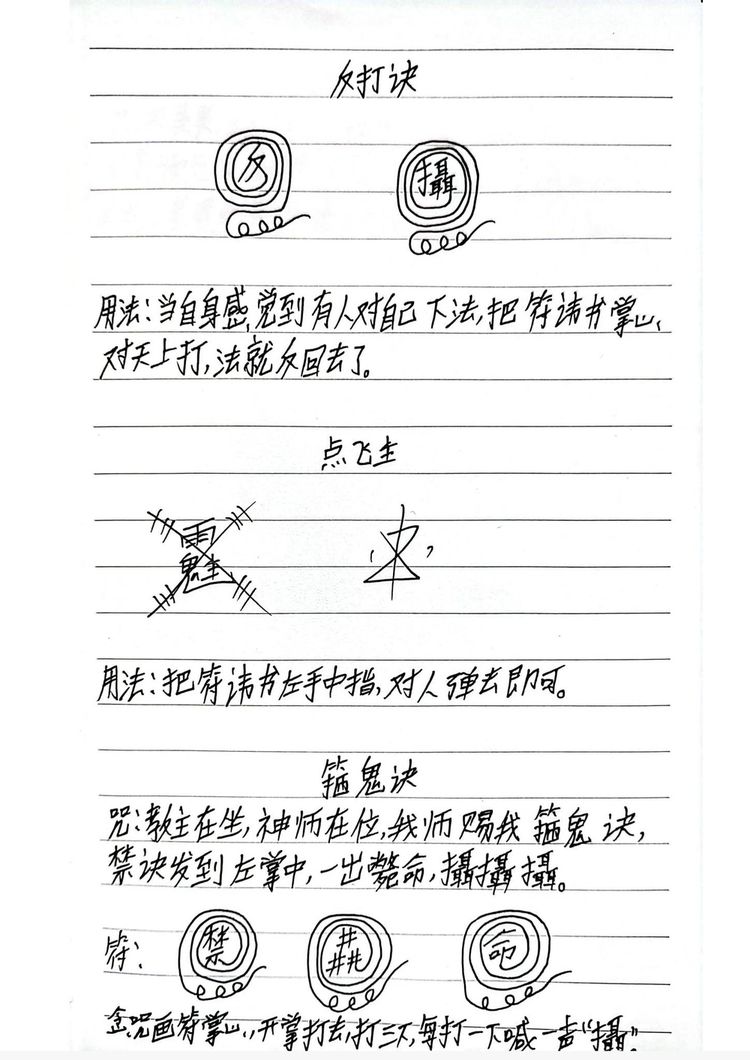 反打诀
反 攝
用法:当自身感觉到有人对自己下法,把符讳书掌心,
对天上打,法就反回去了。
点飞主
用法:把符讳书左手中指,对人弹去即可。
箍鬼诀
咒:教主在坐,神师在位,我师赐我箍鬼诀,
禁诀发到左掌中,一出毙命,攝攝攝。
符: 禁 命
念咒画符掌心,开掌打去,打三下,每打一下喊一声“攝”。